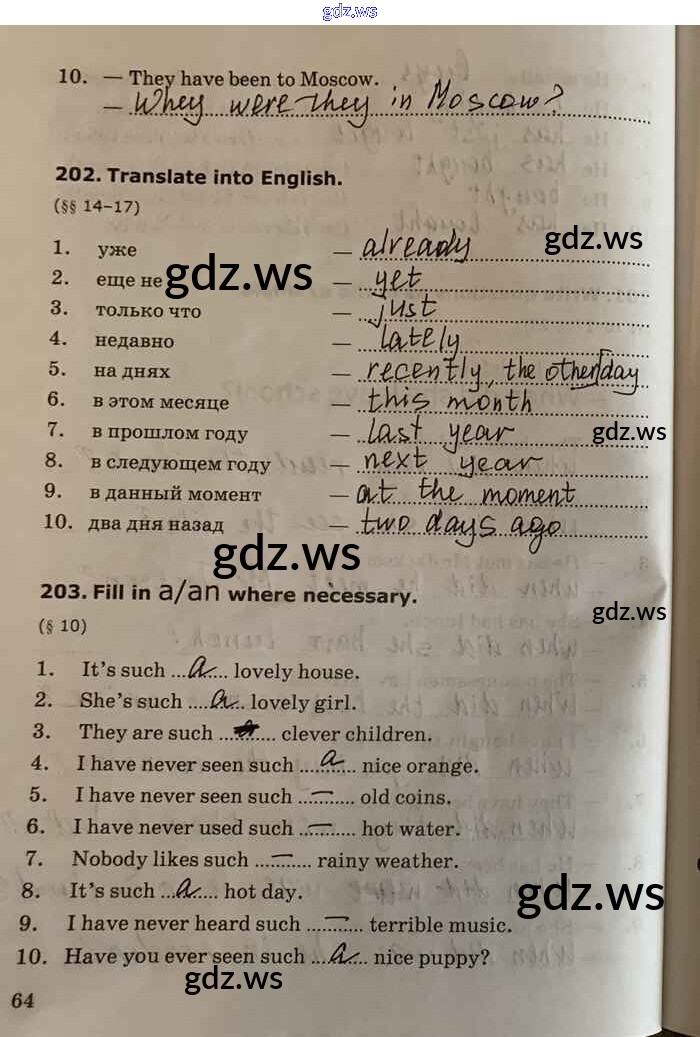 gdz.ws
10. — They have been to Moscow.
— Whey were they in Moscow?
202. Translate into English.
(§§ 14–17)
1. уже — already
gdz.ws
2. еще не — yet
gdz.ws
3. только что — just
4. недавно — lately
5. на днях — recently, the other day
6. в этом месяце — this month
7. в прошлом году — last year
gdz.ws
8. в следующем году — next year
9. в данный момент — at the moment
10. два дня назад — two days ago
gdz.ws
203. Fill in a/an where necessary.
(§ 10)
gdz.ws
1. It's such ...a... lovely house.
2. She's such ...a... lovely girl.
3. They are such ...... clever children.
4. I have never seen such ...a... nice orange.
5. I have never seen such ...—... old coins.
6. I have never used such ...—... hot water.
7. Nobody likes such ...—... rainy weather.
8. It's such ...a... hot day.
gdz.ws
9. I have never heard such ...—... terrible music.
10. Have you ever seen such ...a... nice puppy?
gdz.ws
64